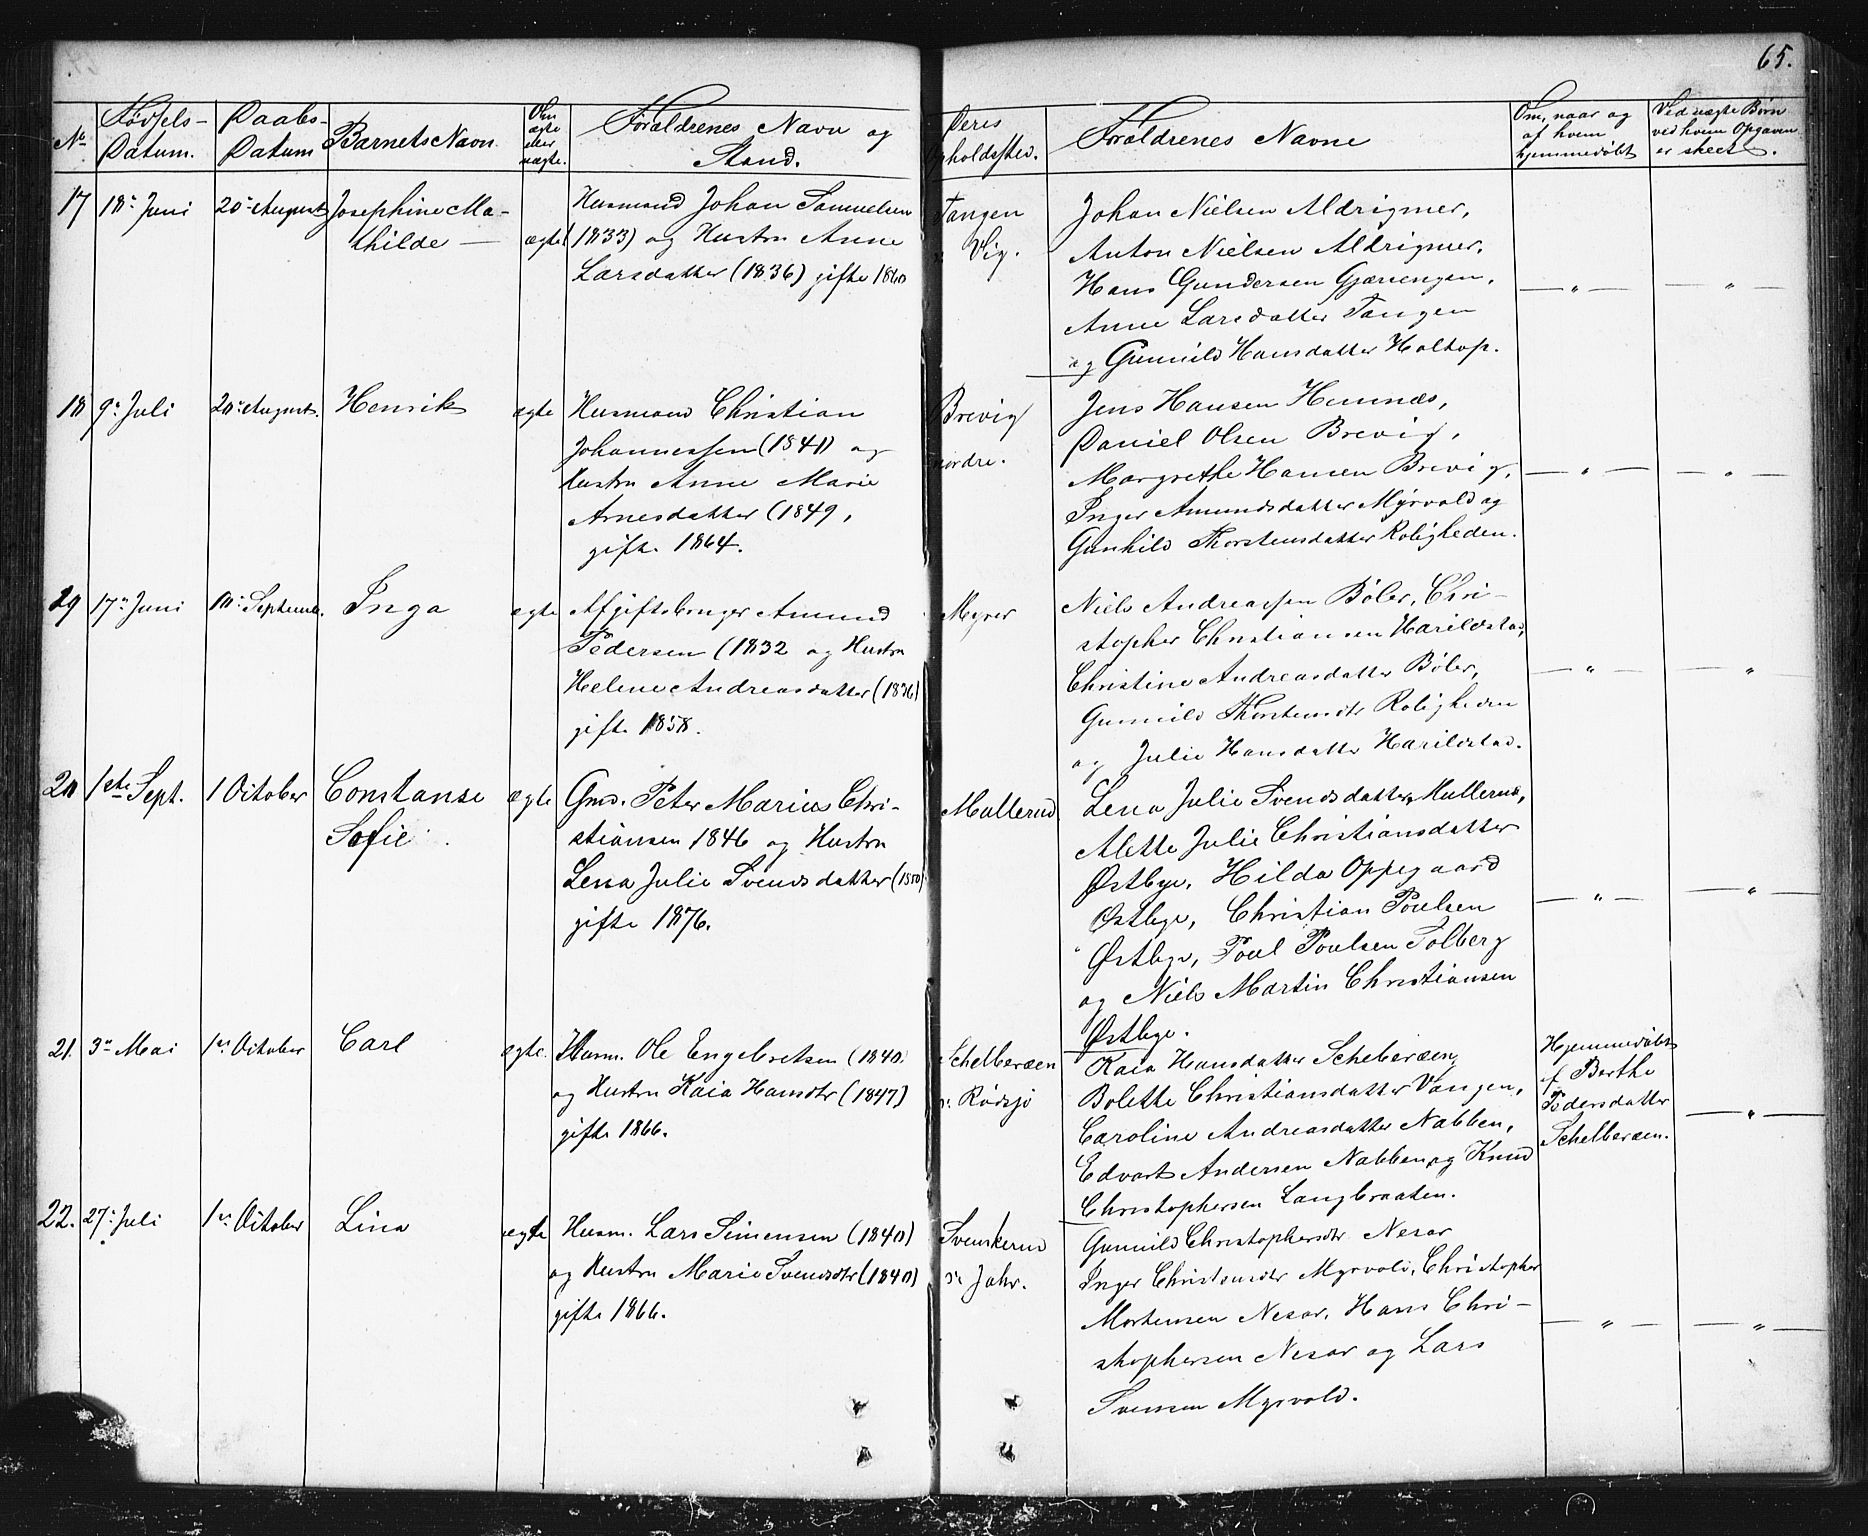 65.
No
Fødsels-
Datum.
Daabs-
Datum
Barnets Navn.
Om
ægte
eller
uægte.
Forældrenes Navn og
Stand.
Deres
Opholdssted.
Forældrenes Navne
Om, naar og
af hvem
hjemmedøbt
Ved uægte Børn
ved hvem Opgaven
er skeet.
17 18: Juni 20: August Josephine Ma-
thilde — ægte
Husmand Johan Samuelsen
1833) og Hustru Anne
Larsdatter (1836) gifte 1860
Tangen
Vig.
Johan Nielsen Aldrigmer,
Anton Nielsen Aldrigmer,
Hans Gundersen Gjærengen,
Anne Larsdatter Tangen
og Gunnild Hansdatter Holtop.
— " — — " —
18 9: Juli 20: August. Henrik ægte
Husmand Christian
Johannessen (1841) og
Hustru Anne Marie
Arnesdatter (1849,
gifte 1864.
Brevig
nordre.
Jens Hansen Hemnæs,
Daniel Olsen Brevig,
Margrethe Hansen Brevig,
Inger Amundsdatter Myrvold og
Gunhild Thorstensdatter Roligheden.
— " — — " —
29 17: Juni 10: Septemb. Inga ægte
Afgiftsbruger Amund
Pedersen (1832 og Hustru
Helene Andreasdatter (1836)
gifte 1858.
Myrer
Niels Andreassen Bøler, Chri-
stopher Christiansen Harildstad,
Christine Andreasdatter Bøler,
Gunnild Thorstensdtr Roligheden
og Julie Hansdatter Harildstad.
— " — "
20 1ste Sept. 1 October Constanse
Sofie ægte
Gmd. Peter Marius Chri-
stiansen 1846 og Hustru
Lena Julie Svendsdatter (1850)
gifte 1876.
Mullerud
Lena Julie Svendsdatter Mullerud,
Alette Julie Christiansdatter
Østbye, Hilda Oppegaard
Østbye, Christian Poulsen
Østbye, Poul Poulsen Solberg
og Niels Martin Christiansen
Østbye.
— " — — " —
21. 3: Mai 1: October Carl ægte.
Husm. Ole Engebretsen (1840)
og Hustru Kaia Hansdtr (1847)
gifte 1866.
Schelbræen
Rødsjø
Kaia Hansdatter Schelbræen,
Bolette Christiansdatter Vangen,
Caroline Andreasdatter Nabben,
Edvart Andersen Nabben, og Knud
Christophersen Langbraaten.
Hjemmedøbt
af Berthe
Pedersdatter
Schelbræen.
— " —
22. 27: Juli 1: October Lina ægte
Husm. Lars Simensen (1840)
og Hustru Marie Svendsdtr (1840)
gifte 1866.
Svenskerud
Jahr.
Gunnild Christophersdtr Nesør
Inger Christensdtr Myrvold, Christopher
Mortensen Nesør, Hans Chri-
stophersen Nesør og Lars
Svensen Myrvold.
— " — — " —